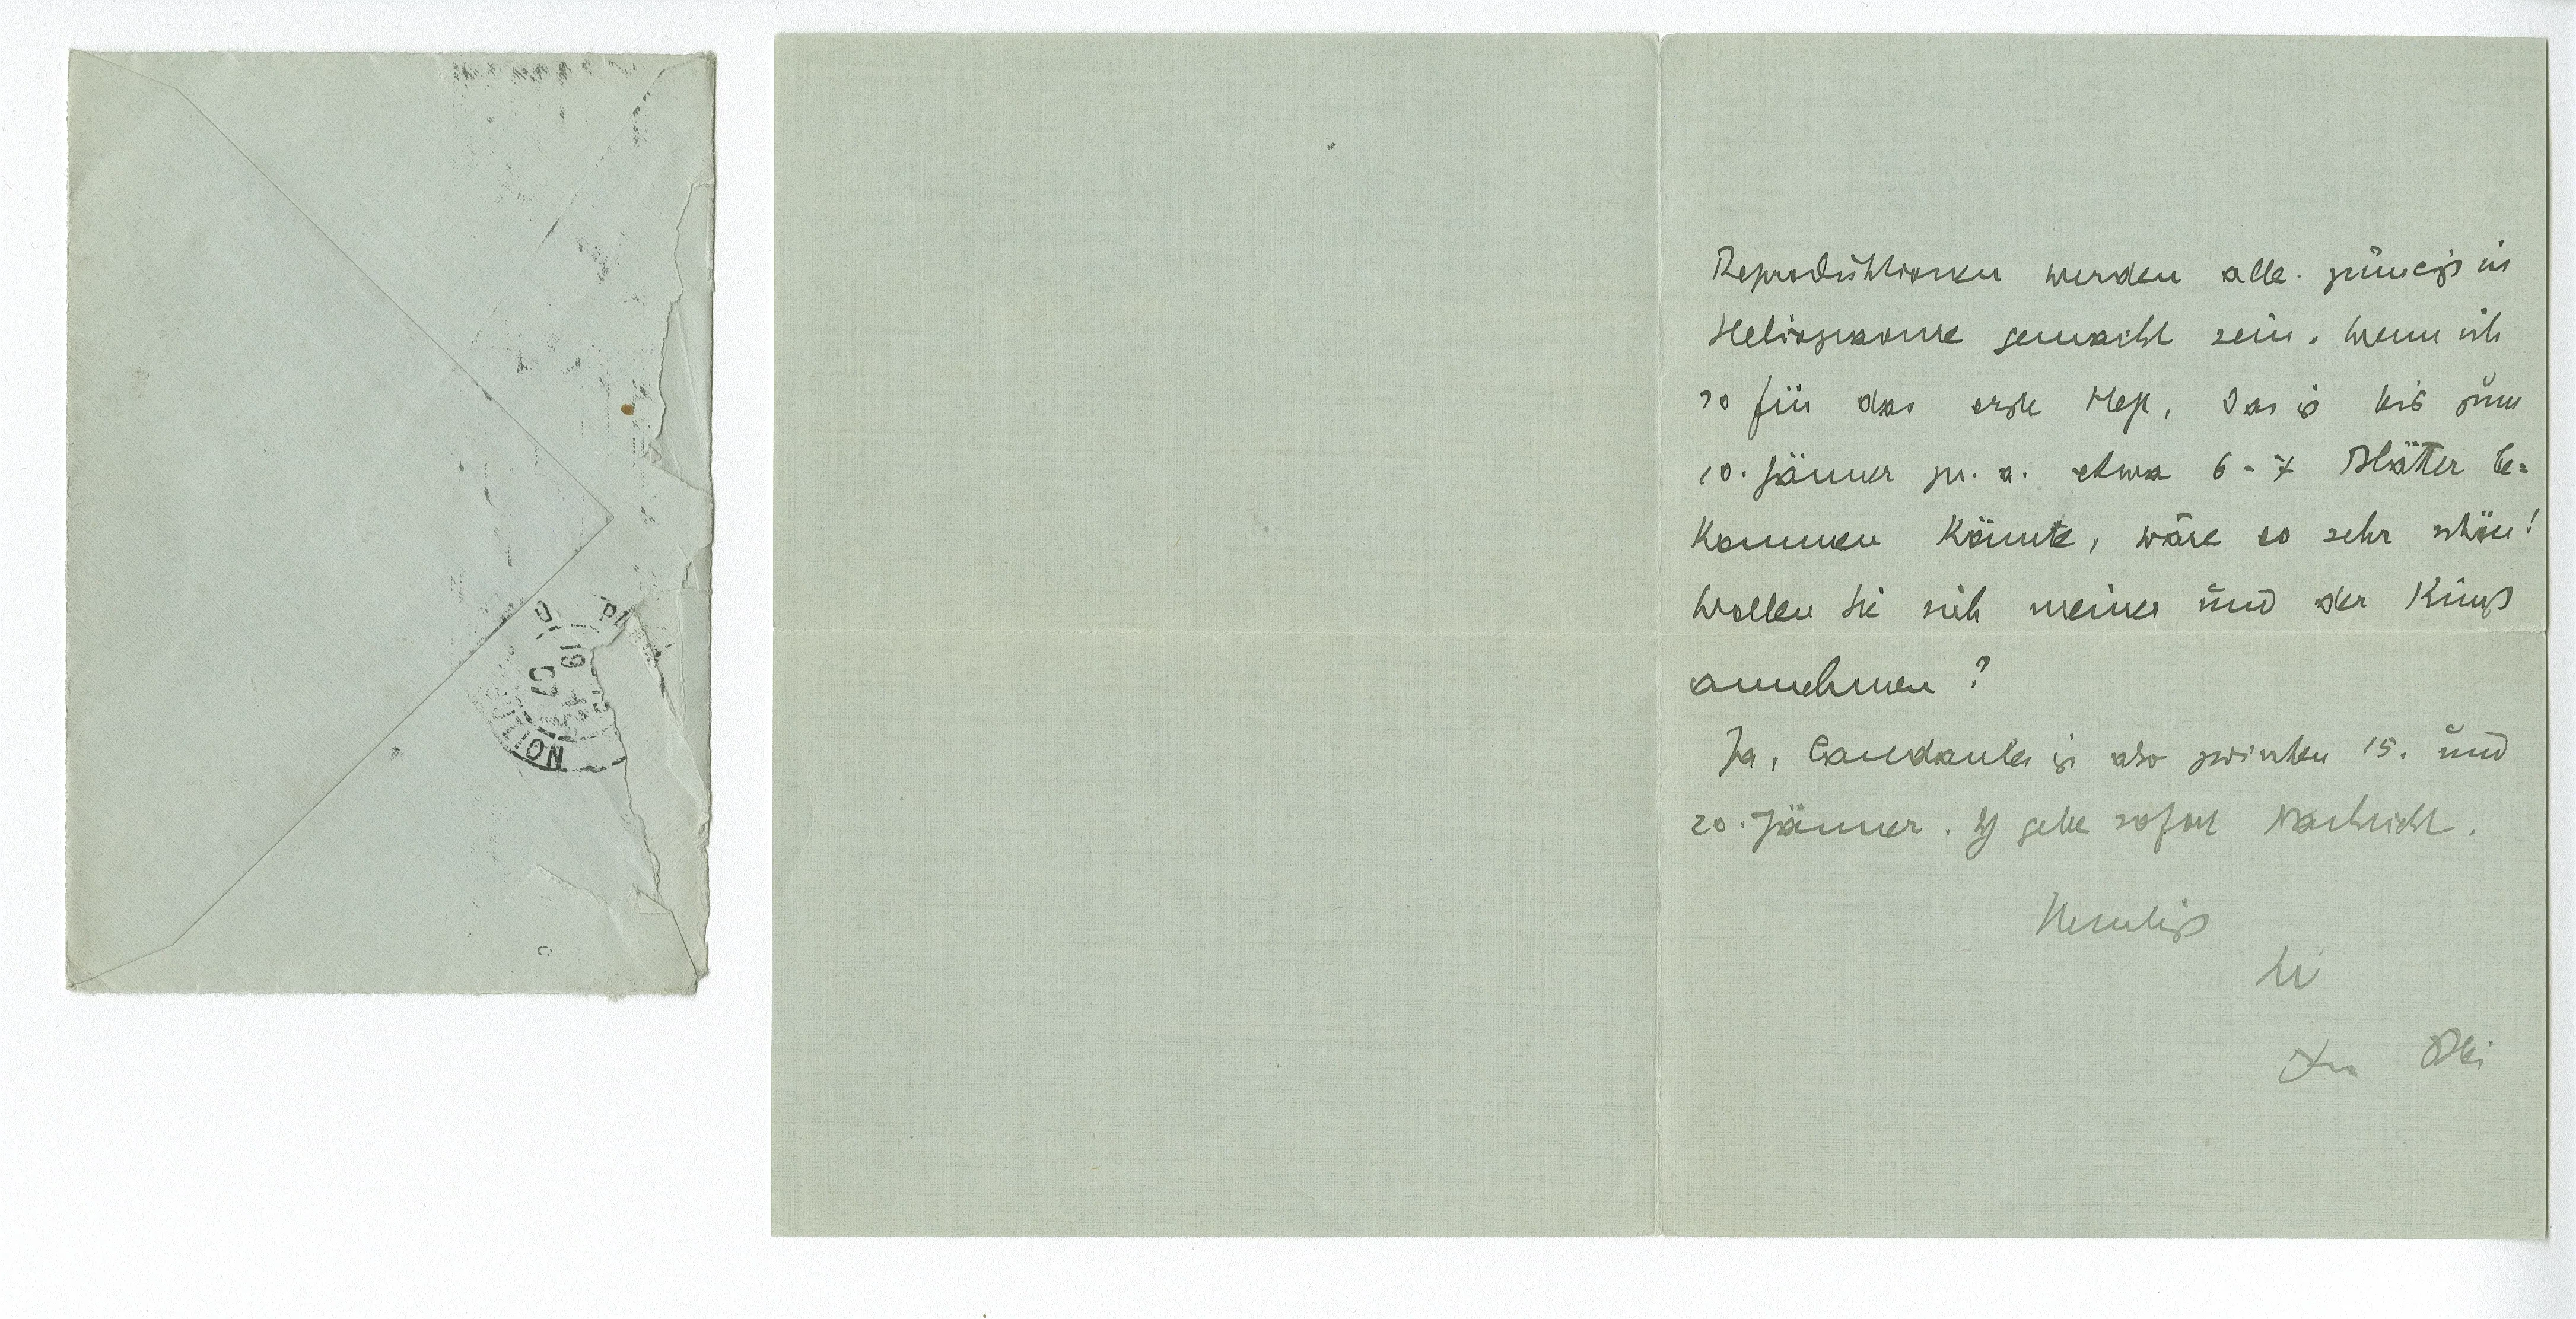 DISTRIBUTION
Reproduktionen werden alle in
Heliogravure gemacht sein. Wenn ich
so für das erste Heft, das ist bis zum
10. Jänner pr. a. etwa 6-7 Blätter be=
kommen könnte, wäre es sehr schön!
Wollen Sie sich meiner und der Kunst
annehmen?
Ja, Candaules ist also zwischen 15. und
20. Jänner. Ich gebe sofort Nachricht.
Herzlichst
Ihr